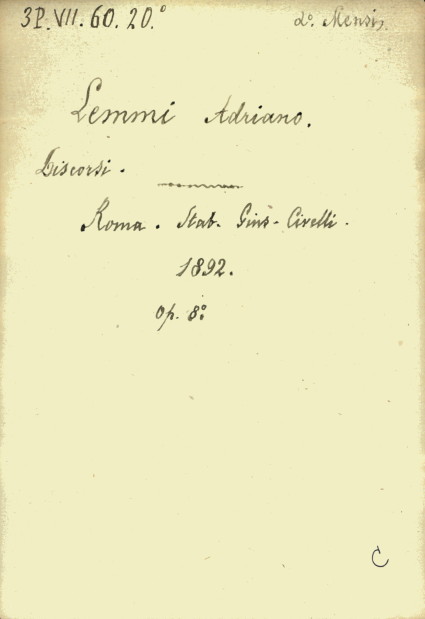 3P. VII. 60. 20.°
2°. Mensi,
Lemmi Adriano.
Discorsi.
Roma. Stab. Gius. Civelli.
1892.
Op. 8°.
C